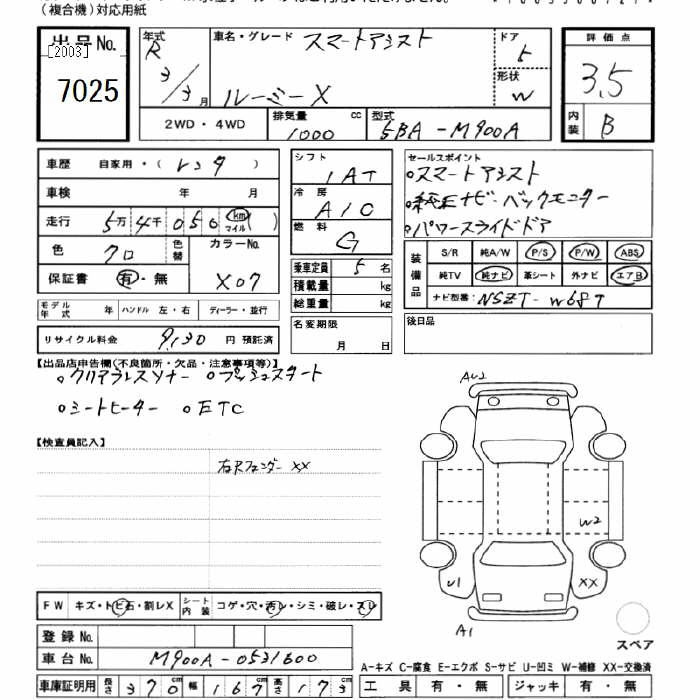 (複合機)対応用紙
出品No.
[2003]
7025
年式 R 3/3月
車名・グレード スマートアシスト
ルーミー X
ドア 5
形状 W
評価点
3.5
内装 B
2WD・4WD
排気量 1000 cc
型式 5BA-M900A
車歴 自家用・(レンタ)
車検 年 月
走行 5万4千050 km マイル( )
色 クロ 色替 カラーNo. X07
保証書 有・無
モデル年式 年 ハンドル 左・右 ディーラー・並行
リサイクル料金 9,130 円 預託済
シフト IAT
冷房 A/C
燃料 G
乗車定員 5 名
積載量 kg
総重量 kg
名変期限 月 日
セールスポイント
。スマートアシスト
。純正ナビ・バックモニター
。パワースライドドア
装備品
S/R 純A/W P/S P/W ABS
純TV 純ナビ 革シート 外ナビ エアB
ナビ型番: NSZT-W68T
後日品
【出品店申告欄(不良箇所・欠品・注意事項等)】
。クリアランスソナー 。プッシュスタート
。シートヒーター 。ETC
【検査員記入】
右Rフェンダー XX
AU2
W2
U1
XX
A1
スペア
FW キズ・トビ石・割レX シート内装 コゲ・穴・汚レ・シミ・破レ・スレ
登録No.
車台No. M900A-0531600
車庫証明用 長さ 370cm 幅 167cm 高さ 173cm
A-キズ C-腐食 E-エクボ S-サビ U-凹ミ W-補修 XX-交換済
工具 有・無 ジャッキ 有・無